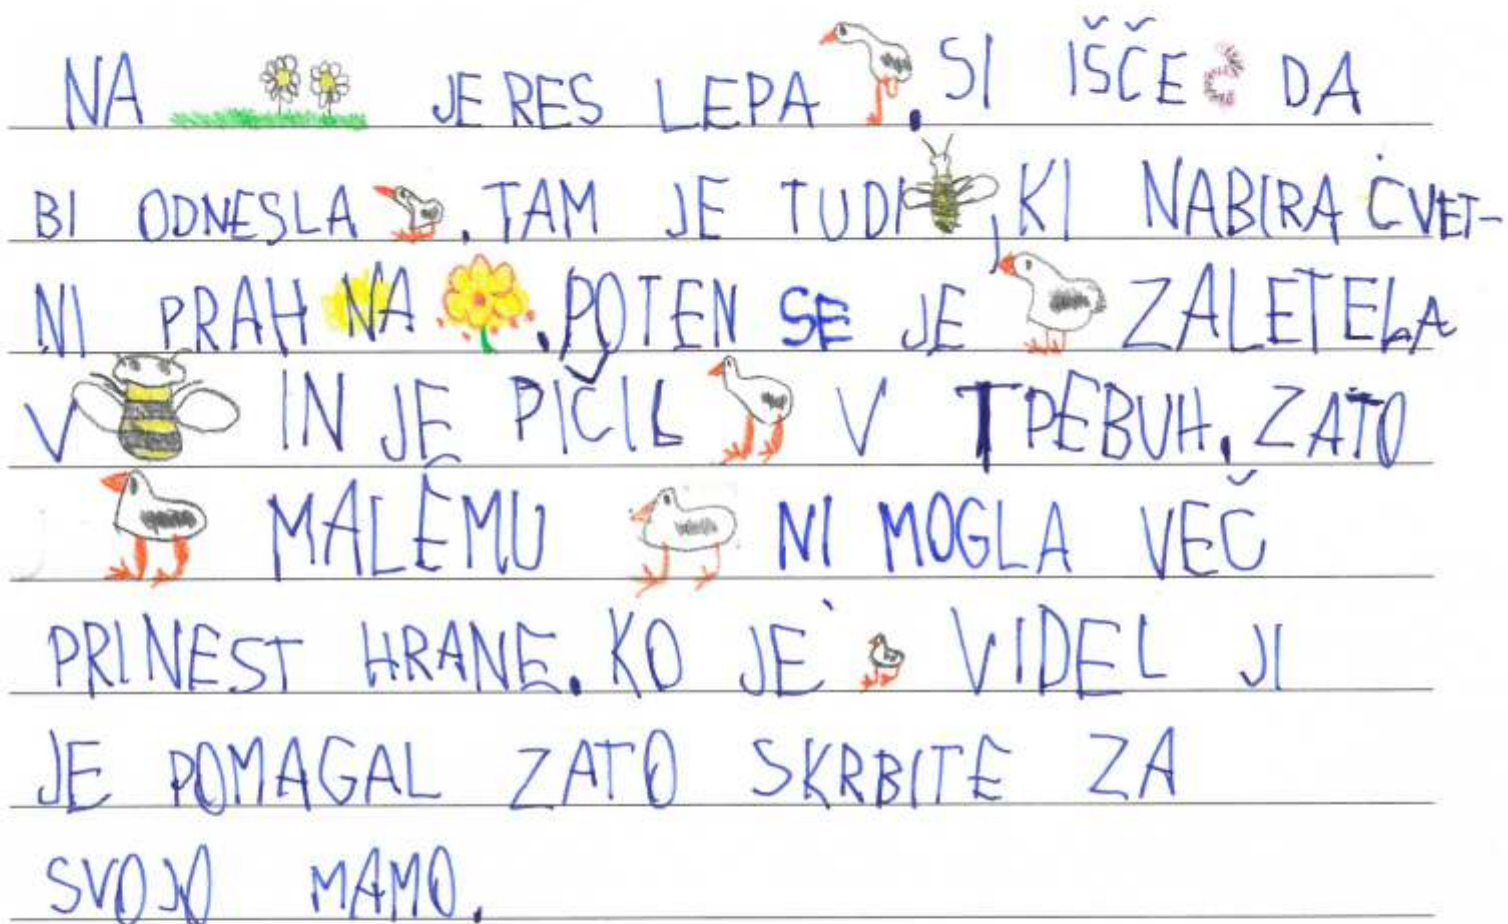 NA JE RES LEPA . SI IŠČE DA
BI ODNESLA . TAM JE TUDI , KI NABIRA CVET-
NI PRAH NA . POTEN SE JE ZALETELA
V IN JE PIČIL V TREBUH. ZATO
MALEMU NI MOGLA VEČ
PRINEST HRANE. KO JE VIDEL JI
JE POMAGAL ZATO SKRBITE ZA
SVOJO MAMO.